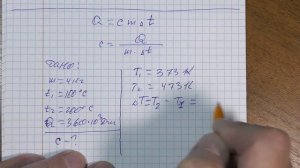 Q = c m Δt
c = Q / m · Δt
Дано:
m = 4 кг
t₁ = 100°C
t₂ = 200°C
c - ?
T₁ = 373 K
T₂ = 473 K
ΔT = T₂ - T₁ =